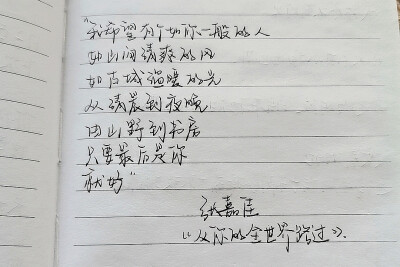 “我希望有个如你一般的人
如山间清爽的风
如古城温暖的光
从清晨到夜晚
由山野到书房
只要最后是你
就好”
张嘉佳
《从你的全世界路过》.